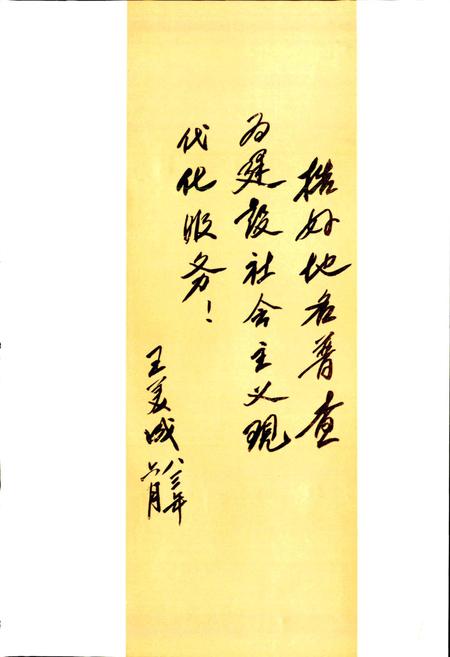 搞好地名普查
为建設社会主义现
代化服务！
王美成
八三年
六月